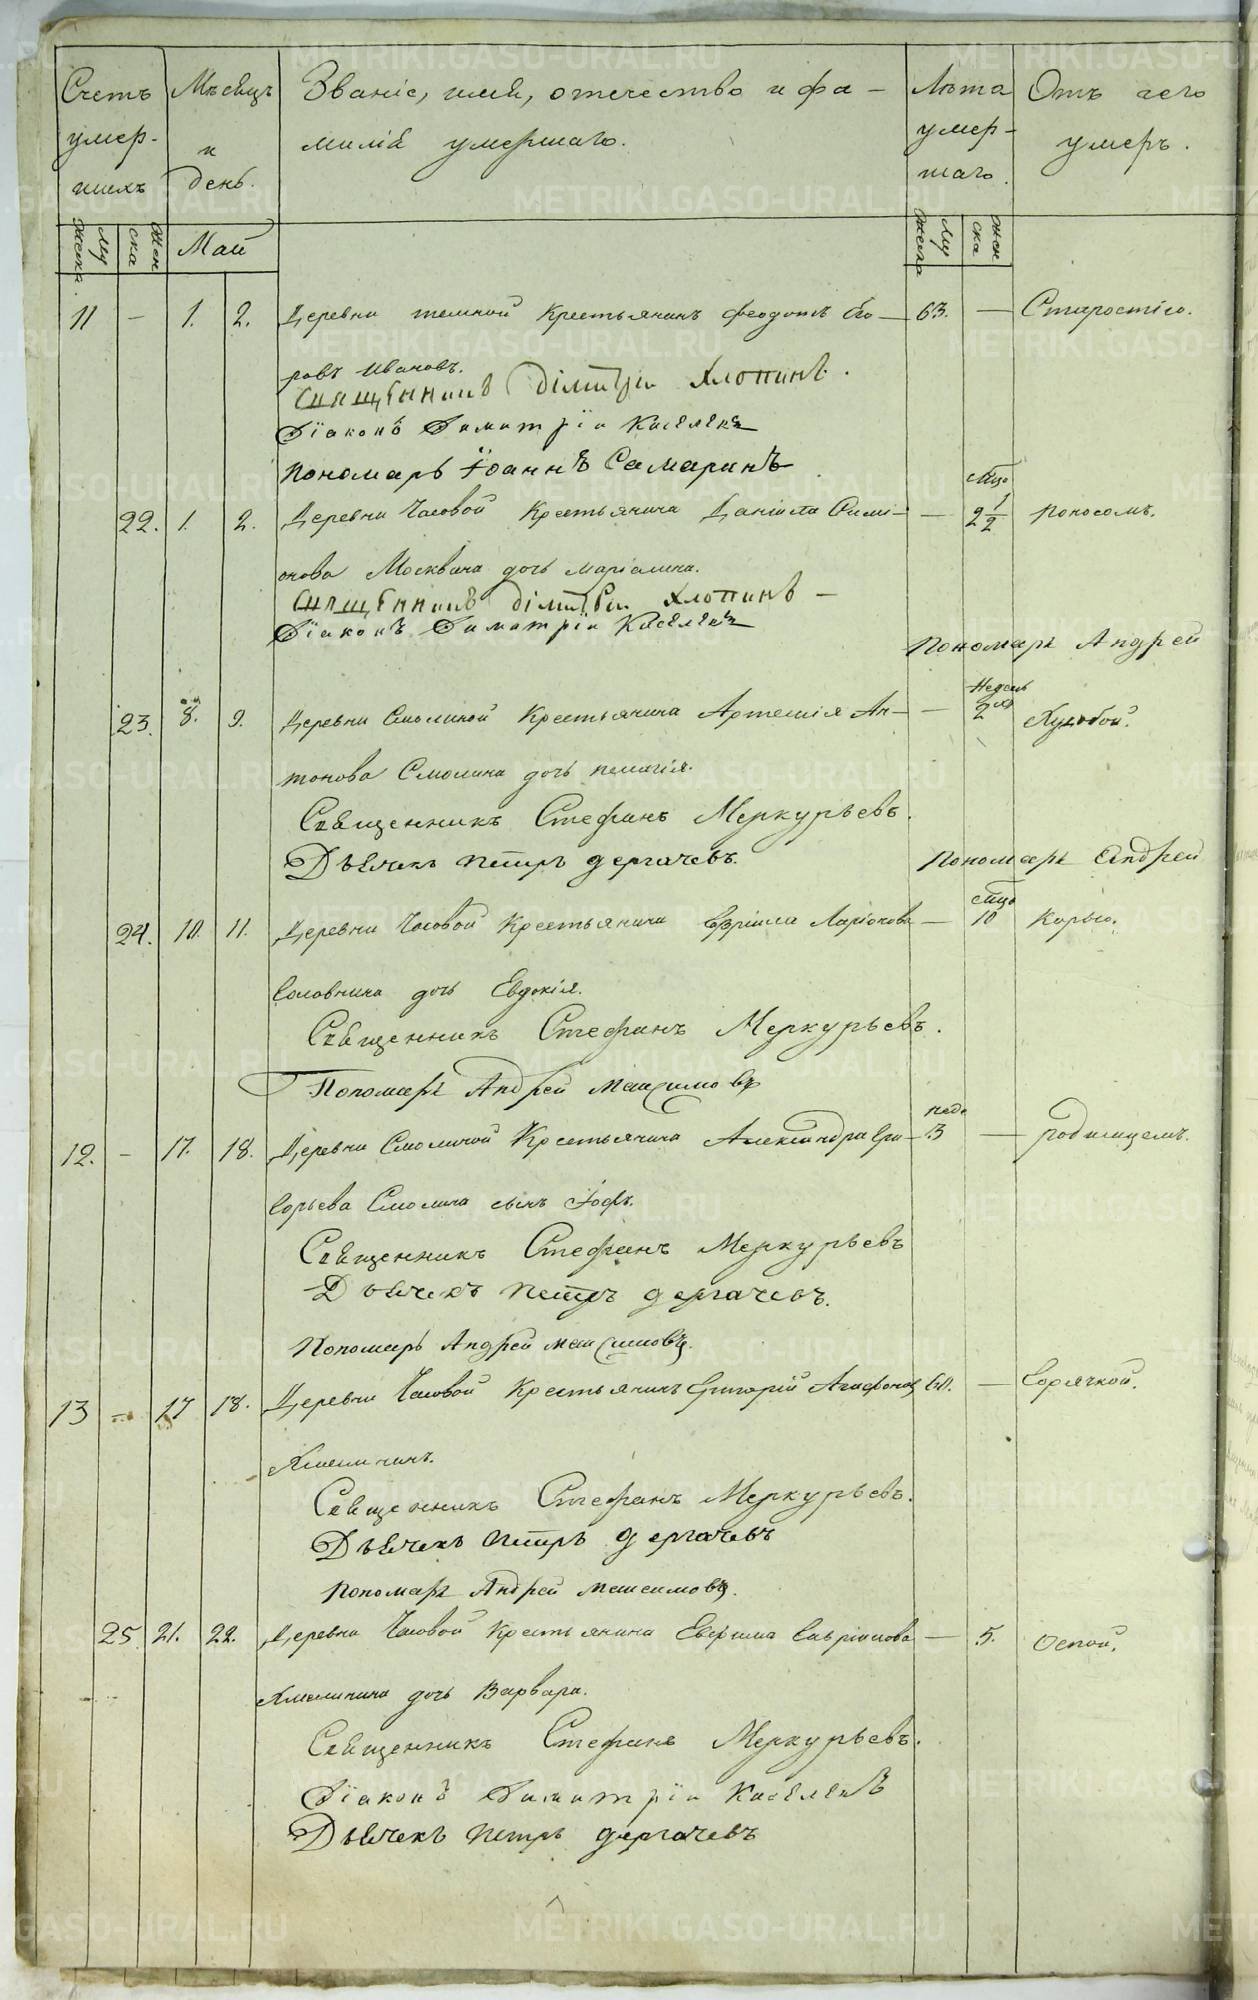 Счетъ умер- шихъ
Мѣсяцъ и день.
Званіе, имя, отечество и фа-
милія умершаго.
Лѣта умер- шаго.
Отъ чего умеръ.
Му жеска
Жен ска
Май
Му жеска
Жен ска
11 — 1. 2. Деревни темной Крестьянинъ Феодотъ Его— 63. — Старостію.
ровъ Ивановъ.
Священникъ Дімітрій Хлопинъ.
Діаконъ Димитрій Киселевъ
Пономарь Іоаннъ Самаринъ
22. 1. 2. Деревни Часовой Крестьянина Даніила Сими— — мцо 2 1/2 поносомъ.
онова Москвина дочь Маріамна.
Священникъ Дімітрій Хлопинъ —
Діаконъ Димитрій Киселевъ
Пономарь Андрей
23. 8. 9. Деревни Смолиной Крестьянина Артемія Ан— — Недель 2хъ Худобой.
тонова Смолина дочь Пелагія.
Священникъ Стефанъ Меркурьевъ.
Дьячекъ Петръ Дергачевъ.
Пономарь Андрей
24. 10. 11. Деревни Часовой Крестьянина Гавріила Ларіонова — мцо 10 Корью.
Соловнина дочь Евдокія.
Священникъ Стефанъ Меркурьевъ.
Пономарь Андрей Максимовъ
12. — 17. 18. Деревни Смолиной Крестьянина Александра Гри— неде 3 — родимцемъ.
горьева Смолина сынъ Іовъ.
Священникъ Стефанъ Меркурьевъ
Дьячекъ Петръ Дергачевъ.
Пономарь Андрей Максимовъ.
13 — 17 18. Деревни Часовой Крестьянинъ Григорій Агафоновъ 60. — Горячкой.
Хмелининъ.
Священникъ Стефанъ Меркурьевъ.
Дьячекъ Петръ Дергачевъ
Пономарь Андрей Максимовъ.
25. 21. 22. Деревни Часовой Крестьянина Ефрима Гавріилова — 5. Оспой.
Хмелинина дочь Варвара.
Священникъ Стефанъ Меркурьевъ.
Діаконъ Димитрій Киселевъ
Дьячекъ Петръ Дергачевъ
METRIKI.GASO-URAL.RU